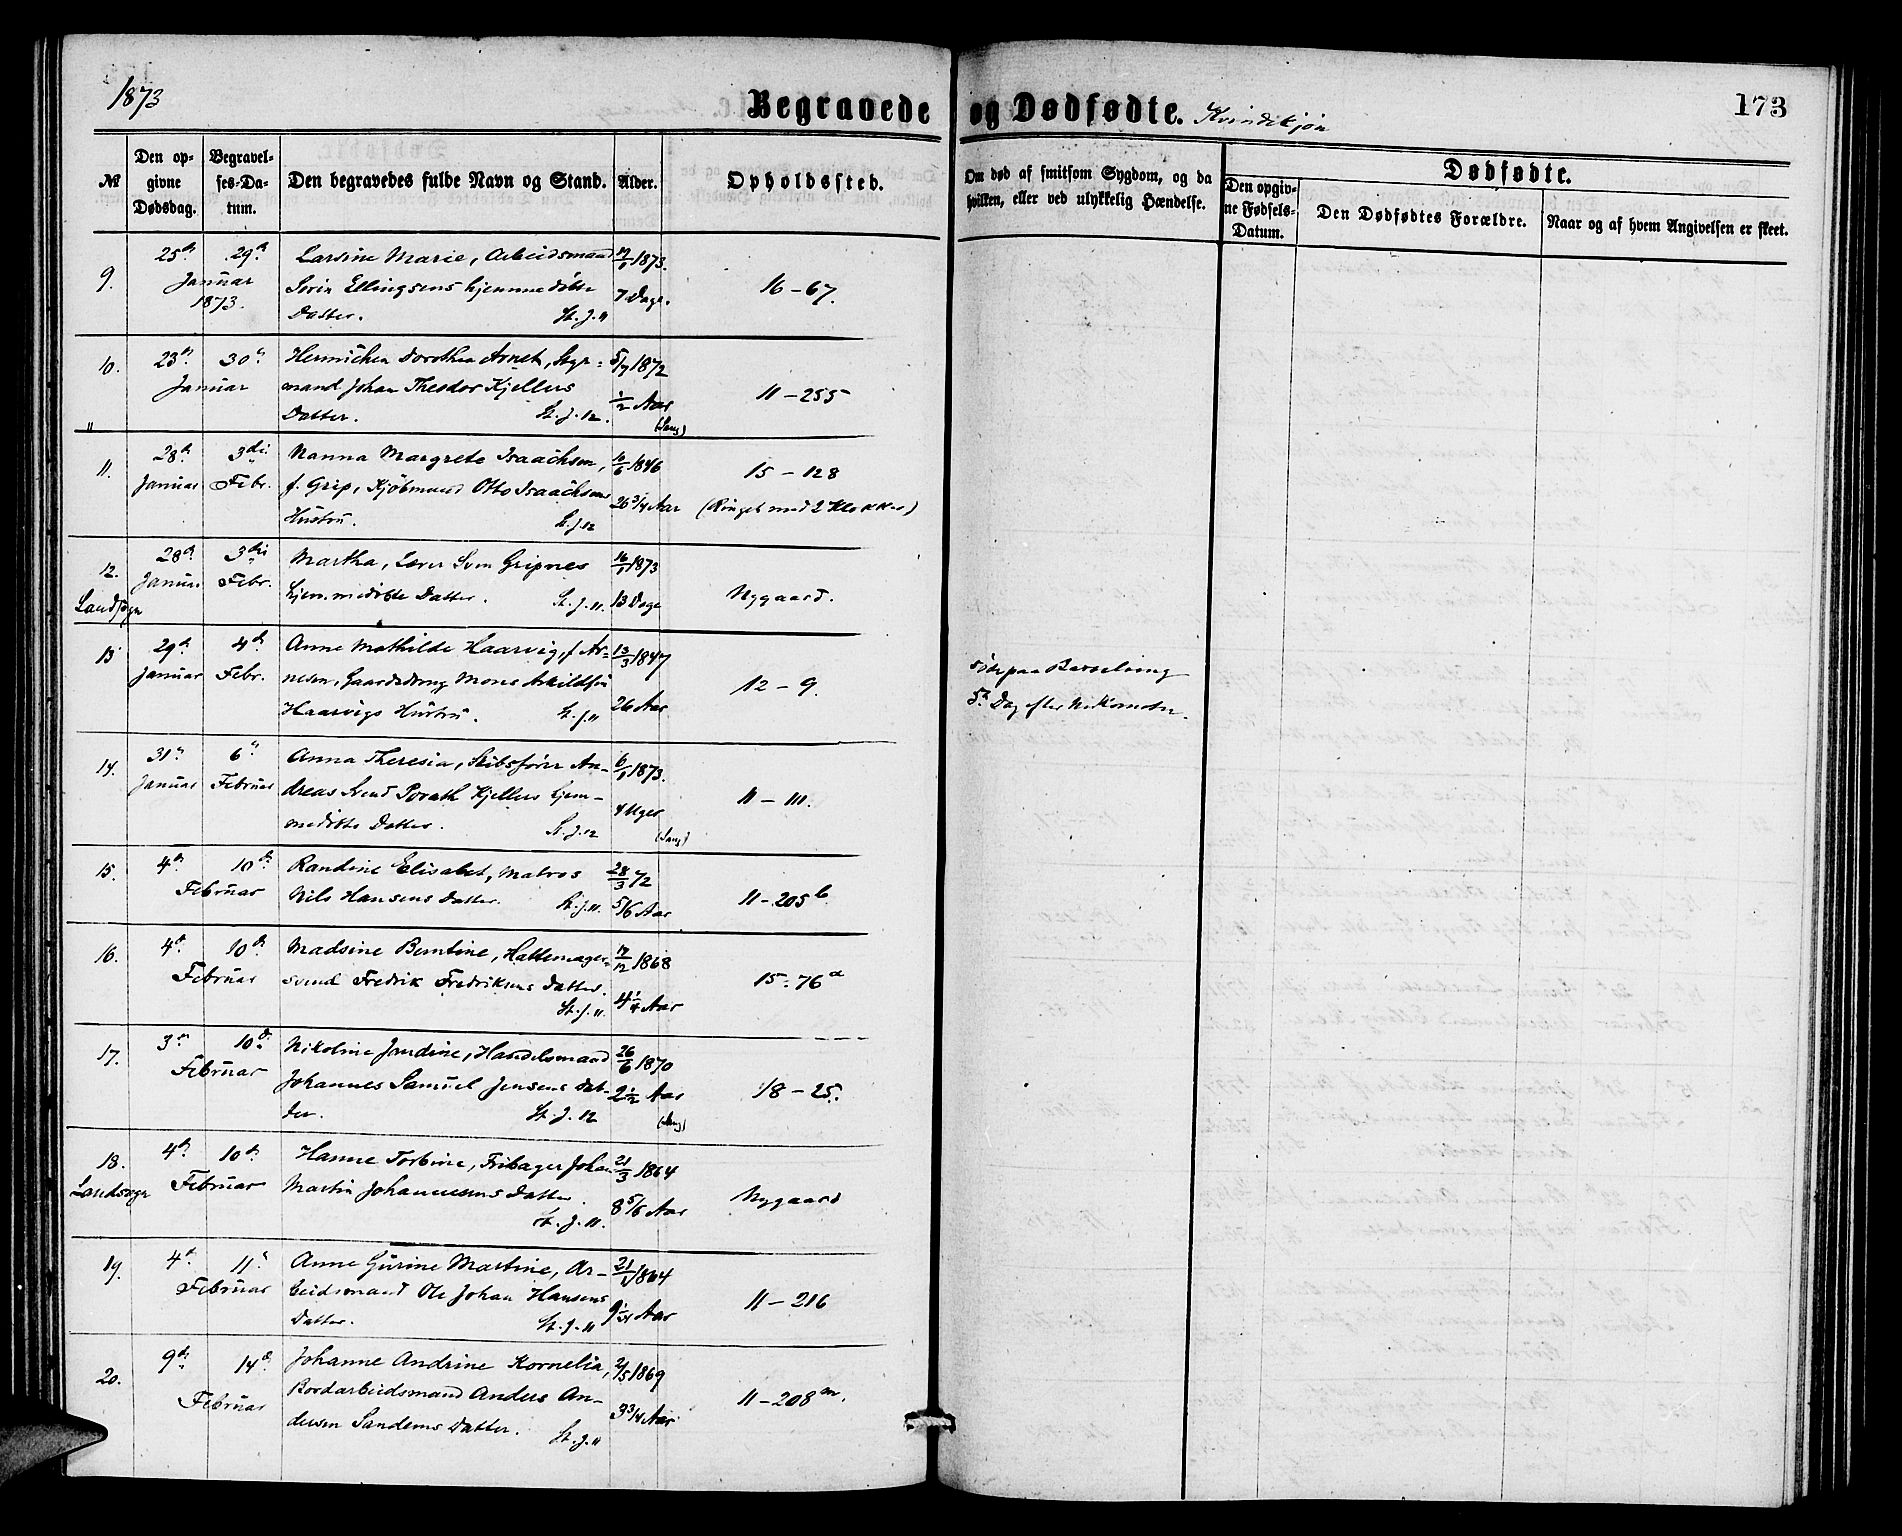 1873
Begravede og Dødfødte. Kvindekjøn
173
№
Den opgivne Dødsdag.
Begravelses-Datum.
Den begravedes fulde Navn og Stand.
Alder.
Opholdssted.
Om død af smitsom Sygdom, og da hvilken, eller ved ulykkelig Hændelse.
Dødfødte.
Den opgivne Fødsels-Datum.
Den Dødfødtes Forældre.
Naar og af hvem Angivelsen er skeet.
9. 25de 29de Januar 1873. Larsine Marie, Arbeidsmand 17/1 1873.
Sørin Ellingsens hjemmedøbte 7 Dage. 16 – 67.
Datter. St. J. 11
10. 23de 30te Januar Dorothea Agnet, Styr= 5/7 1872
mand Johan Theodor Kjellers ½ Aar 11 – 255
Datter. St. J. 12. (Sang)
11. 28de Januar 3die Febr. Nanna Margrete Isaachsen, 1846 15 – 128
f. Grip, Kjøbmand Otto Isaachsens 26 3/4 Aar (Ringet med 2 Klokker)
Hustru. St. J. 12
12. Landsogn 28de Januar 3die Febr. Martha, Lærer Sven Gripnes 16/1 1873
hjemmedøbte Datter. St. J. 11. 13 Dage Nygaard.
13 29de Januar 4de Febr. Anne Mathilde Haarvig, f. Ar=
nesen, Gaardsdreng Mons Askildsen 13/3 1847 12 – 9.
Haarvigs Hustru. St. J. 11 26 Aar
syg paa Barselseng
5te Dag efter Nedkomsten.
14. 31te Januar 6te Februar Anna Theresia, Skibsfører An– 6/1 1873.
dreas Svend Porath Kjellers hjem– 4 Uger 11 – 111.
medøbte Datter. St. J. 12 (Sang)
15. 4de 10de Februar Randine Elisabet, Matros 28/3 72
Nils Hansens Datter. St. J. 11. 5/6 Aar 11 – 205 b.
16. 4de 10de Februar Madsine Berntine, Hattemager= 17/12 1868
svend Fredrik Fredriksens Datter. 15 – 76 a
St. J. 11. 4 ¼ Aar
17. 3die 10de Februar Nikoline Jandine, Handelsmand 26/6 1870
Johannes Samuel Jensens Dat– 2 ½ Aar 18 – 25.
ter. St. J. 12 (Sang)
18. Landsogn 4de 10de Februar Hanne Torbine, Johan 21/3 1864
Martin Johannesens Datter. 8 5/6 Aar Nygaard
St. J. 11.
19. 4de 11te Februar Anne Gurine Martine, Ar– 21/1 1864
beidsmand Ole Johan Hansens 11 – 216
Datter. St. J. 11 9 1/24 Aar
20. 9de 14de Februar Johanne Andrine Kornelia, 2/5 1869
Bordarbeidsmand Anders An– 11 – 208 m.
dersen Sandems Datter. St. J. 11 3 3/4 Aar